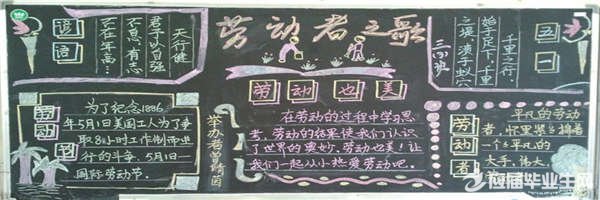 劳动者之歌
谚语
天行健
君子以自强
不息，有志
不在年高…
五一
千里之行，
始于足下，千里
之堤，溃于蚁穴
三(3)班
劳动节
为了纪念1886
年5月1日美国工人为了争
取8小时工作制而进
行的斗争，5月1日—
国际劳动节。
举办者曾诗茵
劳动也美
在劳动的过程中学习思
考，劳动的结果使我们认识
了世界的奥妙，劳动也美！让
我们一起从小热爱劳动吧。
劳动者
平凡的劳动
者，怀里紧揣着
一个个平凡的
大手，伟大，
应届毕业生网